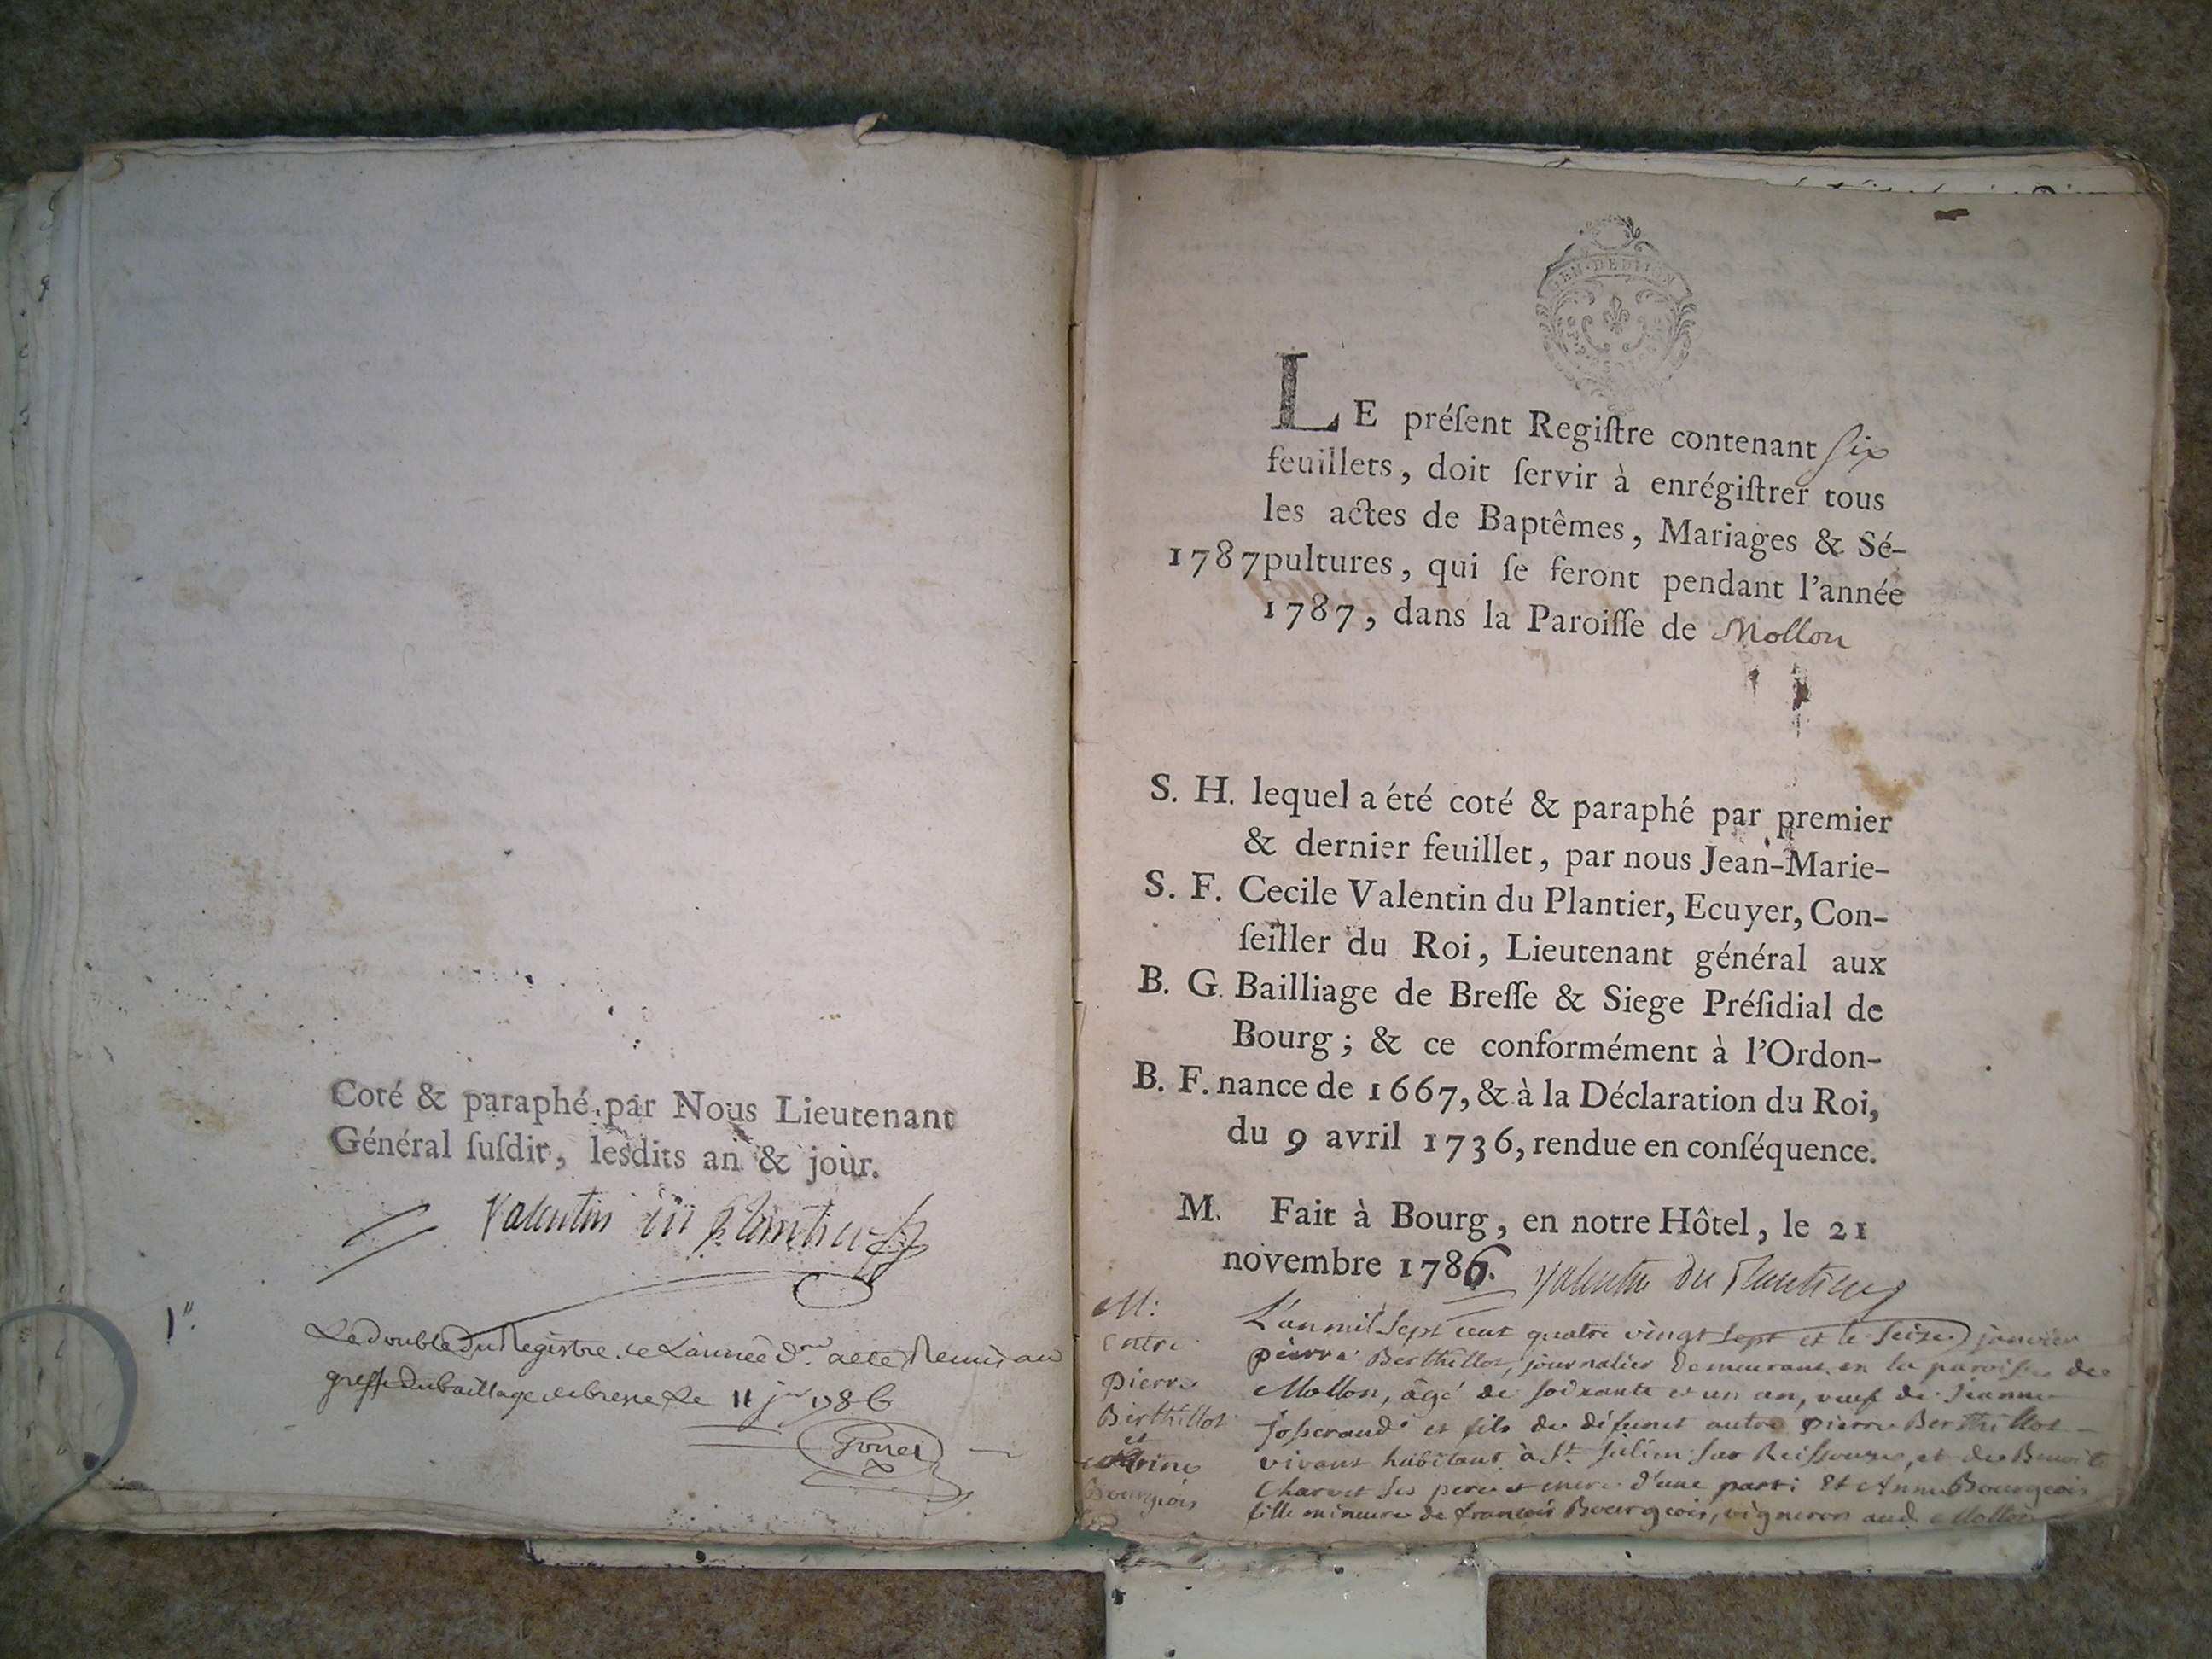 Coté & paraphé par Nous Lieutenant
Général ſuſdit, leſdits an & jour.
Valentin du Plantier
1"
Le double du Registre de L'année d.re a eté Remis au
greffe du bailliage de bresse Le 11 j.er 1786
GEN. DE DIJON
LE préſent Regiſtre contenant six
feuillets, doit ſervir à enrégiſtrer tous
les actes de Baptêmes, Mariages & Sé-
1787 pultures, qui ſe feront pendant l'année
1787, dans la Paroiſſe de Mollon
S. H. lequel a été coté & paraphé par premier
& dernier feuillet, par nous Jean-Marie-
S. F. Cecile Valentin du Plantier, Ecuyer, Con-
ſeiller du Roi, Lieutenant général aux
B. G. Bailliage de Breſſe & Siege Préſidial de
Bourg; & ce conformément à l'Ordon-
B. F. nance de 1667, & à la Déclaration du Roi,
du 9 avril 1736, rendue en conſéquence.
M. Fait à Bourg, en notre Hôtel, le 21
novembre 1786. Valentin du Plantier
M:
Entre
pierre
Berthillot
et
Bourgeois
L'an mil sept cent quatre vingt sept et le seize janvier
pierre Berthillot, journalier demeurant en la paroisse de
Mollon, âgé de soixante et un an, veuf de Jeanne
Josserand et fils de défunct autre pierre Berthillot
vivant habitant à St. julien sur Reissouze, et de Benoite
Charvet ses pere et mere d'une part; Et Anne Bourgeois
fille mineure de françois Bourgeois, vigneron aud. Mollon